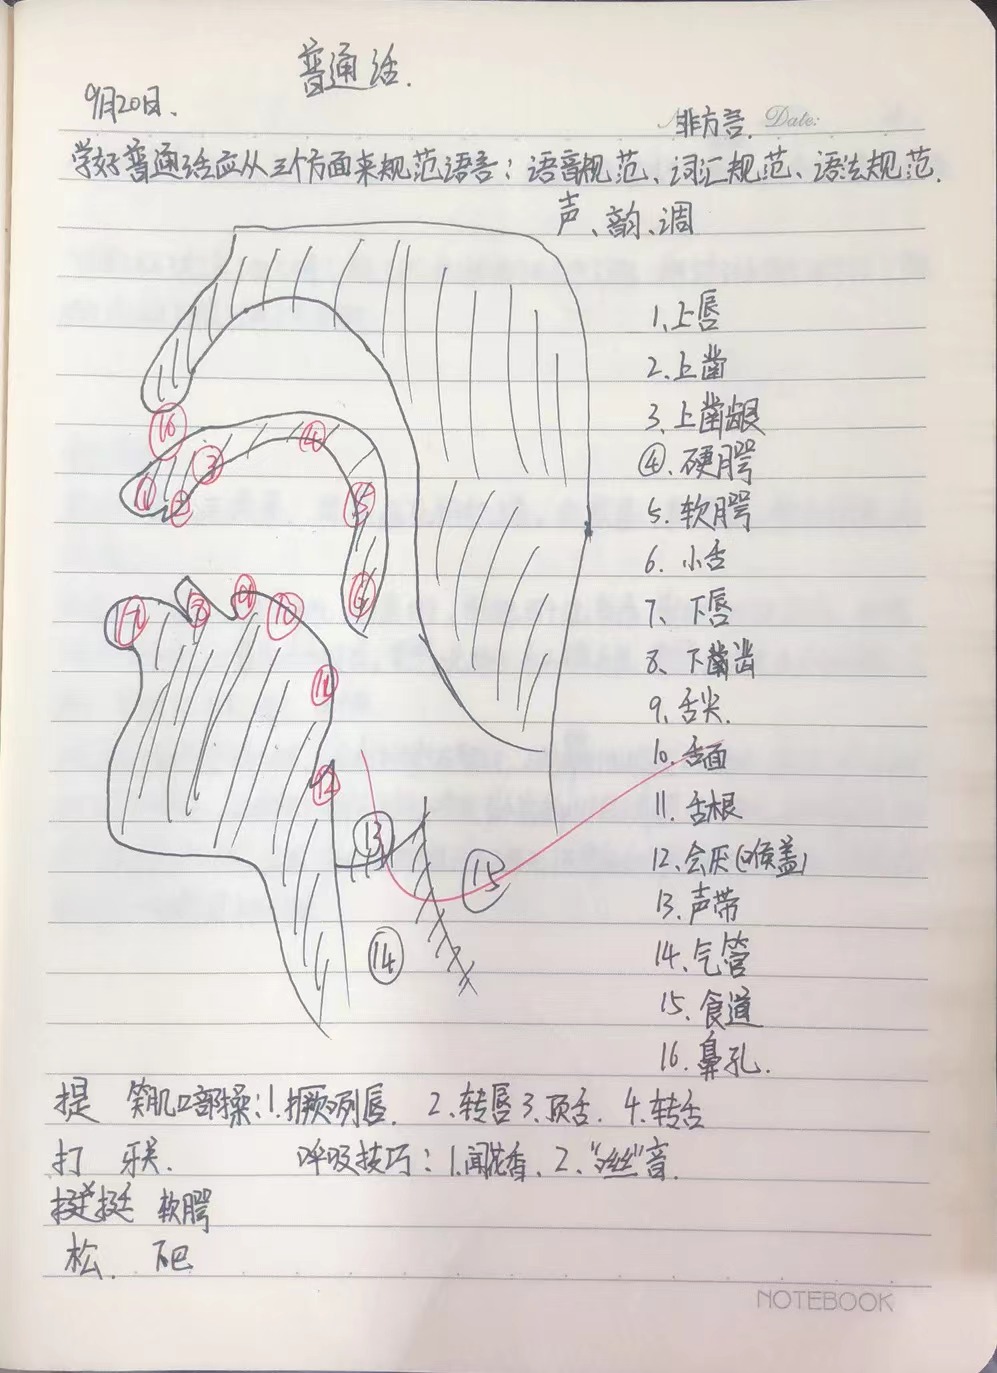 普通话.
9月20日.
非方言. Date:
学好普通话应从三个方面来规范语言：语音规范、词汇规范、语法规范.
声、韵、调
1.上唇
2.上齿
3.上齿龈
④.硬腭
5.软腭
6.小舌
7、下唇
8、下齿
9.舌尖.
10.舌面
11.舌根
12.会厌(喉盖)
13.声带
14.气管
15.食道
16.鼻孔.
⑯
④
③
① ② ⑤
⑦ ⑧ ⑨ ⑩ ⑥
⑪
⑫
⑬
⑮
⑭
提 笑肌 口部操：1.撅唇列唇. 2.转唇 3.顶舌. 4.转舌
打 牙关. 呼吸技巧：1.闻花香、2、“丝丝”音.
挺 软腭
松. 下巴
NOTEBOOK